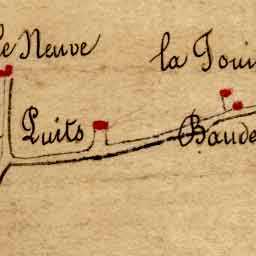 le Neuve
la Toui
Puits
Baude